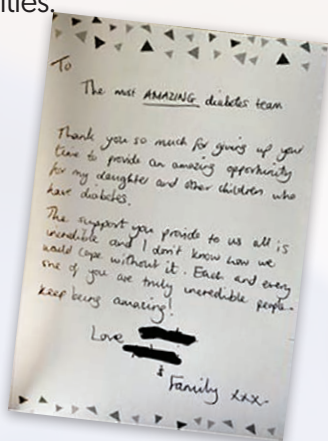 ities.
To
The most AMAZING diabetes team
Thank you so much for giving up your
time to provide an amazing opportunity
for my daughter and other children who
have diabetes.
The support you provide to us all is
incredible and I don't know how we
would cope without it. Each and every
one of you are truly incredible people.
Keep being amazing!
Love
&
Family xxx